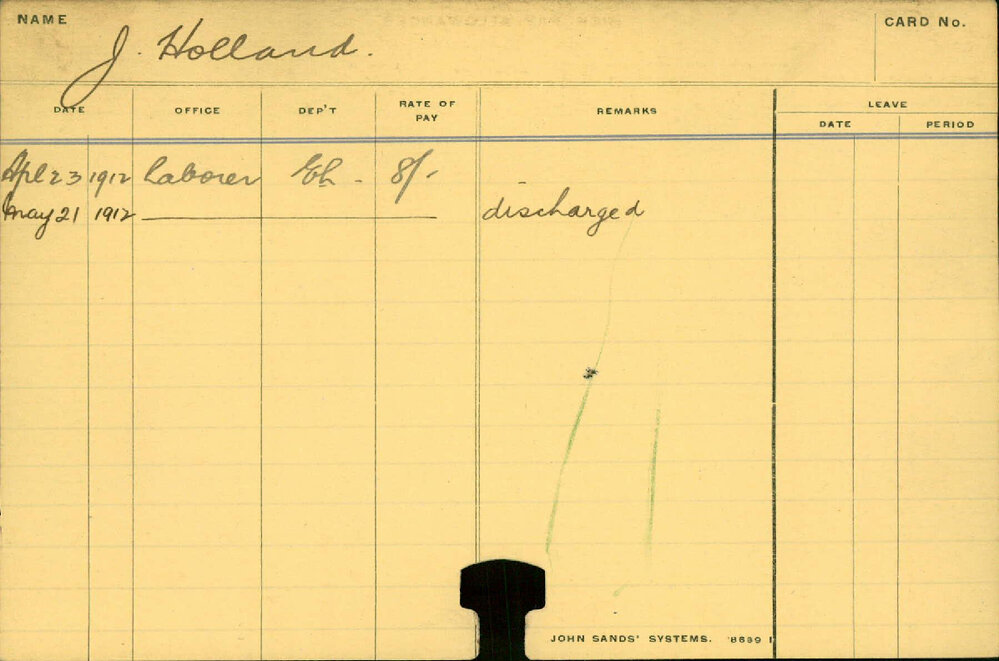 NAME
CARD No.
J. Holland.
DATE OFFICE DEP'T RATE OF PAY REMARKS LEAVE
DATE PERIOD
Apl 23 1912 Laborer 8/-
May 21 1912 discharged
JOHN SANDS' SYSTEMS.